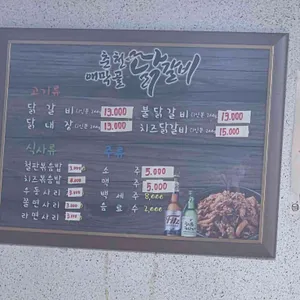 춘천
매막골 닭갈비
고기류
닭 갈 비 13,000 불닭갈비 13,000
닭 내 장 13,000 치즈닭갈비 15,000
식사류 주류
철판볶음밥
치즈볶음밥
우동사리
쫄면사리
라면사리
소 주 5,000
맥 주 5,000
백 세 주 8,000
음 료 수 2,000